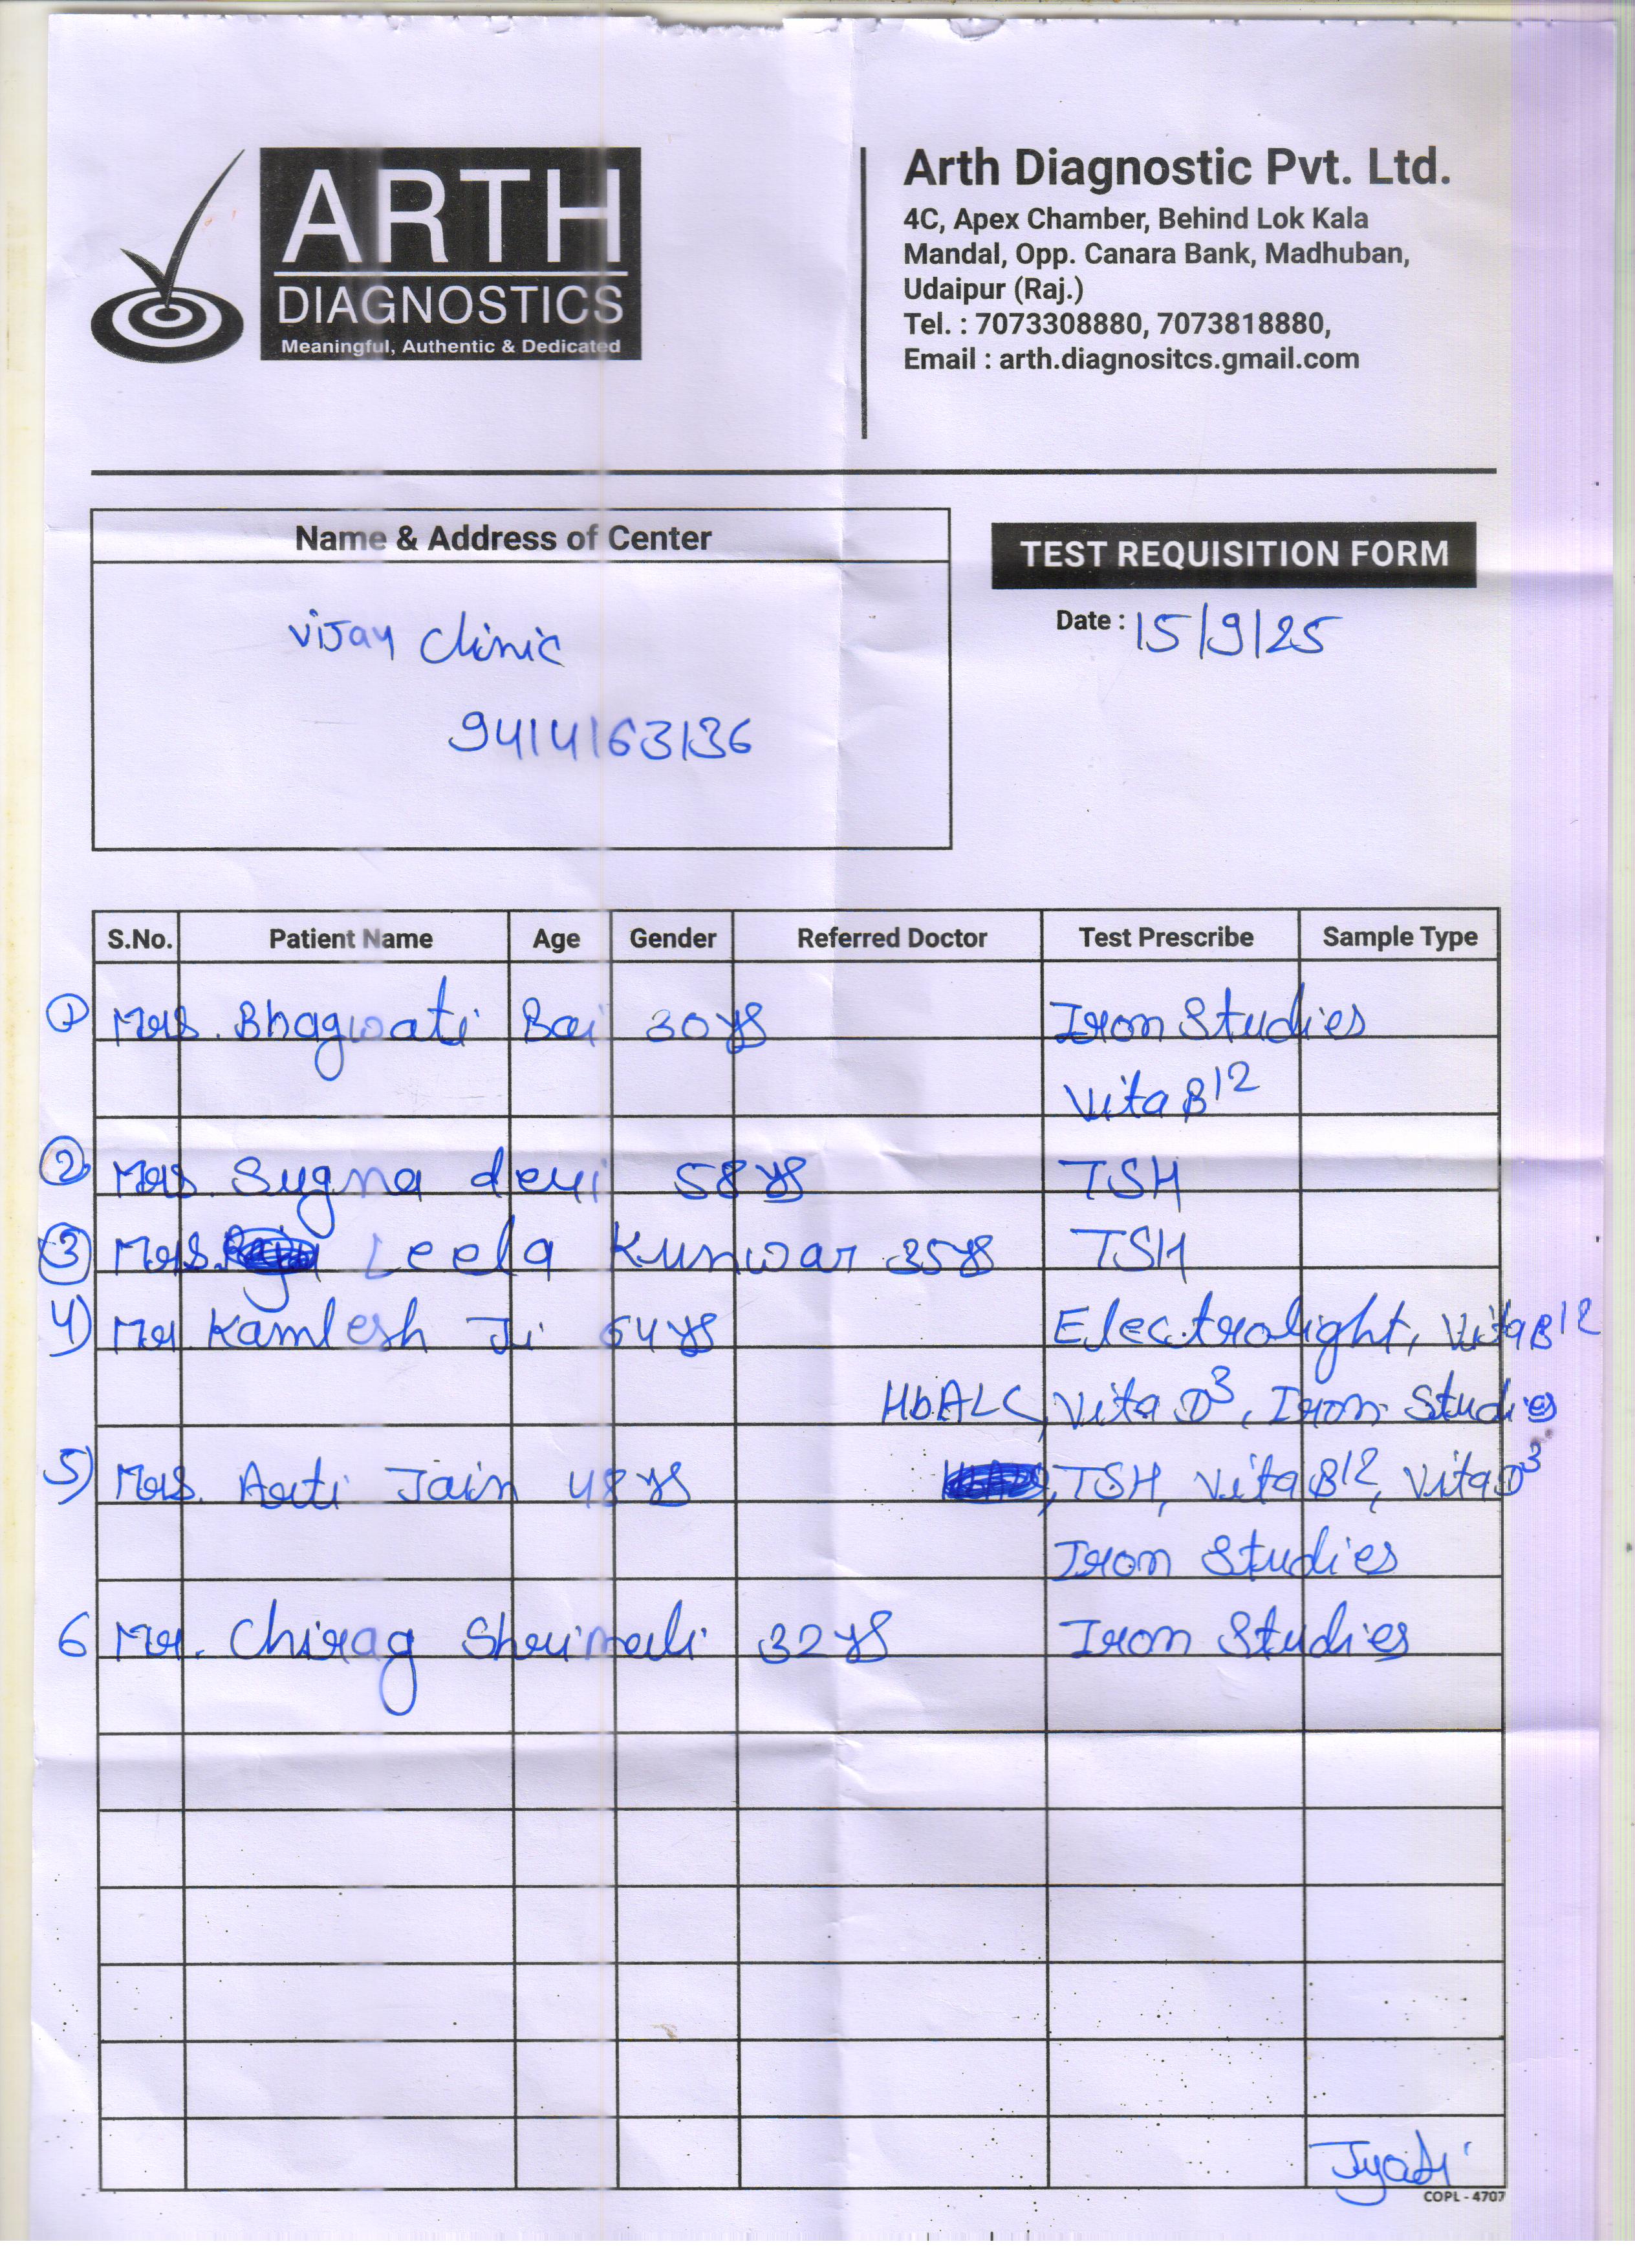 ARTH
DIAGNOSTICS
Meaningful, Authentic & Dedicated
Arth Diagnostic Pvt. Ltd.
4C, Apex Chamber, Behind Lok Kala
Mandal, Opp. Canara Bank, Madhuban,
Udaipur (Raj.)
Tel. : 7073308880, 7073818880,
Email : arth.diagnositcs.gmail.com
Name & Address of Center
Vijay Clinic
9414163136
TEST REQUISITION FORM
Date : 15/9/25
S.No. Patient Name Age Gender Referred Doctor Test Prescribe Sample Type
1 Mrs. Bhagwati Bai 30 ys Iron Studies
Vita B12
2 Mrs. Sugna devi 58 ys TSH
3 Mrs. Leela Kunwar 35 ys TSH
4) Mr Kamlesh Ji 54 ys Electrolight, Vita B12
HbALC, Vita D3, Iron Studies
5) Mrs. Arti Jain 48 ys TSH, Vita B12, Vita D3
Iron Studies
6 Mr. Chirag Shrimali 32 ys Iron Studies
Jyoti
COPL - 4707